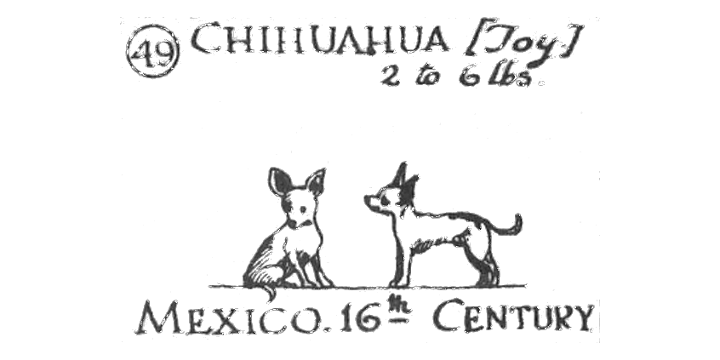 49 CHIHUAHUA [Toy]
2 to 6 lbs.
MEXICO. 16th CENTURY